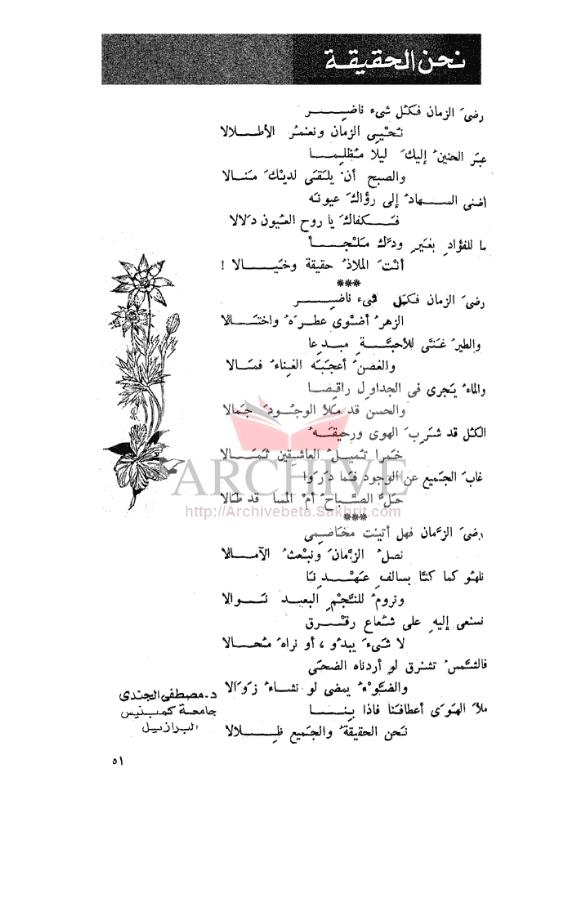 نحن الحقيقة
رضىَ الزمان فكل شىء ناضر
نحيى الزمان ونغمر الأطلالا
عبر الحنين إليك ليلا مظلما
والصبح أن يلقى لديك منالا
أضنى السهاد إلى رؤاك عيونه
فكفاك يا روح العيون دلالا
ما للفؤاد بغير ودك ملجأ
أنت الملاذ حقيقة وخيالا !
***
رضىَ الزمان فكل شىء ناضر
الزهر أضوى عطره واختالا
والطير غنى للأحبة مبدعا
والغصن أعجبه الغناء فمالا
والماء يجرى فى الجداول راقصا
والحسن قد ملأ الوجود جمالا
الكل قد شرب الهوى ورحيقه
خمرا تميل العاشقين ثمالا
غاب الجميع عن الوجود فما دروا
حل الصباح أم المسا قد طالا
***
رضىَ الزمان فهل أتيت مخاصمى
نصل الزمان ونبعث الآمالا
نلهو كما كنا بسالف عهدنا
ونروم للنجم البعيد نوالا
نسعى إليه على شعاع رقرق
لا شىء يبدو ، أو نراه محالا
فالشمس تشرق لو أردناه الضحى
والضوء يمضى لو نشاء زوالا
ملأ الهوى أعطافنا فاذا بنا
نحن الحقيقة والجميع ظلالا
د. مصطفى الجندى
جامعة كمبنيس
البرازيل
٥١
ARCHIVE
http://Archivebeta.Sakhrit.com